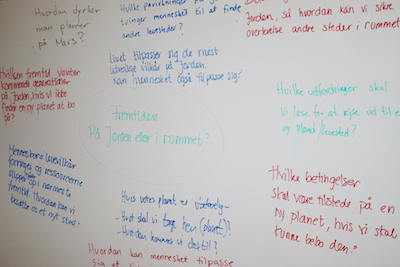 Hvordan dyrker
man planter
på Mars?
Hvilke påvirkninger
tvinger mennesket til at finde
andre levesteder?
Jorden, så hvordan kan vi sikre
overlevelse andre steder i rummet
Livet tilpasser sig de mest
utrolige vilkår på jorden
Kan mennesket også tilpasse sig?
Hvilken fremtid venter
kommende generationer
på jorden, hvis vi ikke
finder en ny planet at bo
på?
Hvilke udfordringer skal
vi løse for at rejse ud til en
ny planet/levested?
Fremtiden
På Jorden eller i rummet?
Menneskers levevilkår
forringes og ressourcerne
slipper op i nærmeste
fremtid. Hvordan kan vi
bosætte os et nyt sted?
Hvis vores planet er
- Hvor skal vi tage hen (planet)?
- Hvordan kommer vi dertil?
Hvilke betingelser
skal være tilstede på en
ny planet, hvis vi skal
kunne bebo den?
Hvordan kan mennesket tilpasse
sig